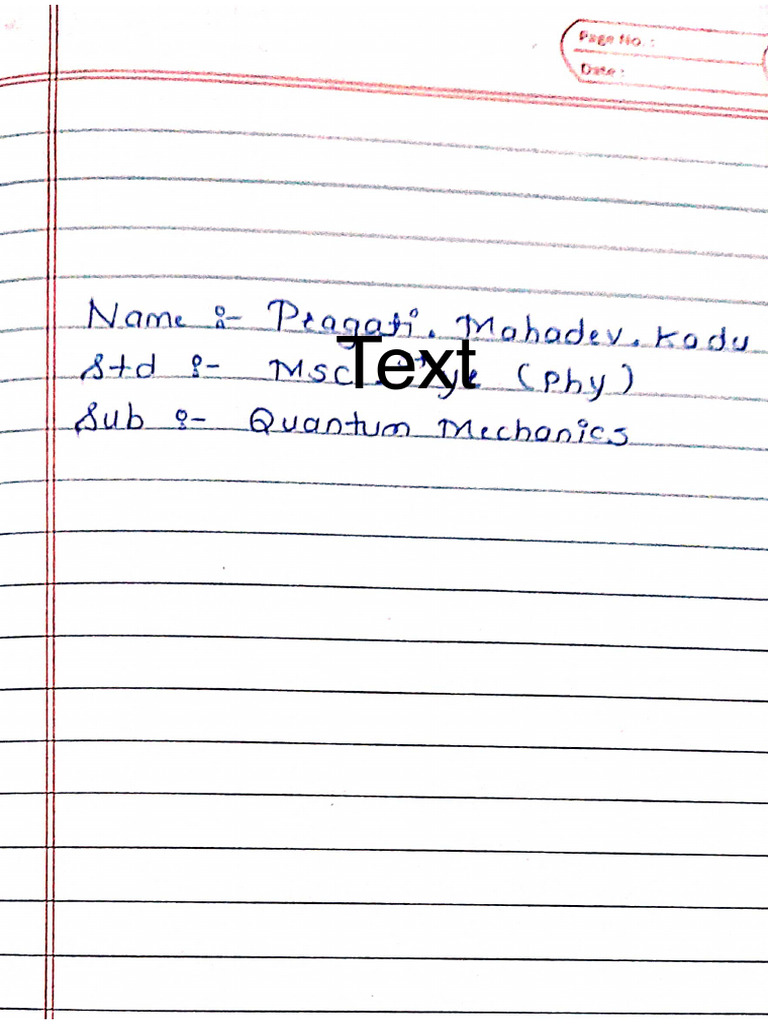 Page No. :
Date :
Name :- Pragati. Mahadev. Kadu
Std :- MSC (Phy)
Text
Sub :- Quantum Mechanics